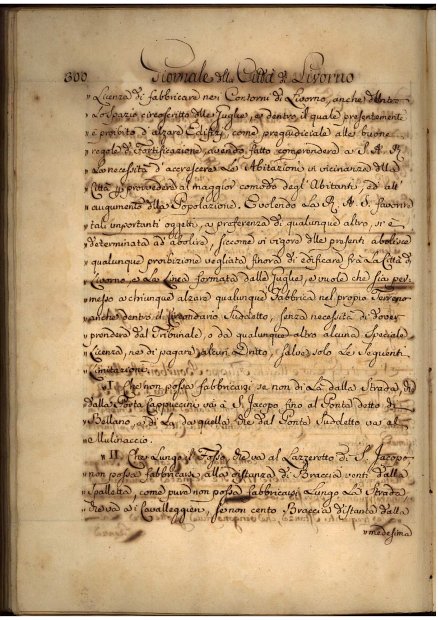 300 Giornale della Città di Livorno
„ Licenza di fabbricare nei Contorni di Livorno, anche dentro
„ Lo spazio circoscritto dalle Guglie, e dentro il quale presentemente
„ è proibito d'alzare Edifizj, come pregiudiciale alle buone
„ regole di Fortificazione, avendo fatto comprendere a S. A. R.
„ La necessità d'accrescere Le Abitazioni in vicinanza della
„ Città per provvedere al maggior comodo degl'Abitanti, ed all'
„ augumento della Popolazione, E volendo La R. A. S. favorire
„ tali importanti oggetti, a preferenza di qualunque altro, si è
„ determinata ad abolire, siccome in vigore delle presenti abolisce
„ qualunque proibizione vegliata finora di edificare frà La Città di
„ Livorno, e La Linea formata dalle Guglie, e vuole che sia per„
„ messo a chiunque alzare qualunque Fabbrica nel proprio Terreno
„ anche dentro il Circondario Suddetto, senza necessità di dover
„ prendere dal Tribunale, o da qualunque altro alcuna Speciale
„ Licenza, nè di pagare alcun Dritto, salve solo Le Seguenti
„ Limitazioni.
„ I. Che non possa fabbricarsi se non di Là dalla Strada, che
„ dalla Porta Cappuccini và à S. Jacopo fino al Ponte detto di
„ Bellano, e di Là da quella che dal Ponte Suddetto va al
„ Mulinaccio.
„ II. Che Lungo il Fosso, che va al Lazzeretto di S. Jacopo
„ non possa fabbricarsi, alla distanza di Braccia venti dalla
„ Spalletta, come pure non possa fabbricarsi Lungo La Strada,
„ che va ai Cavalleggieri, se non cento Braccia distante dalla
„ medesima